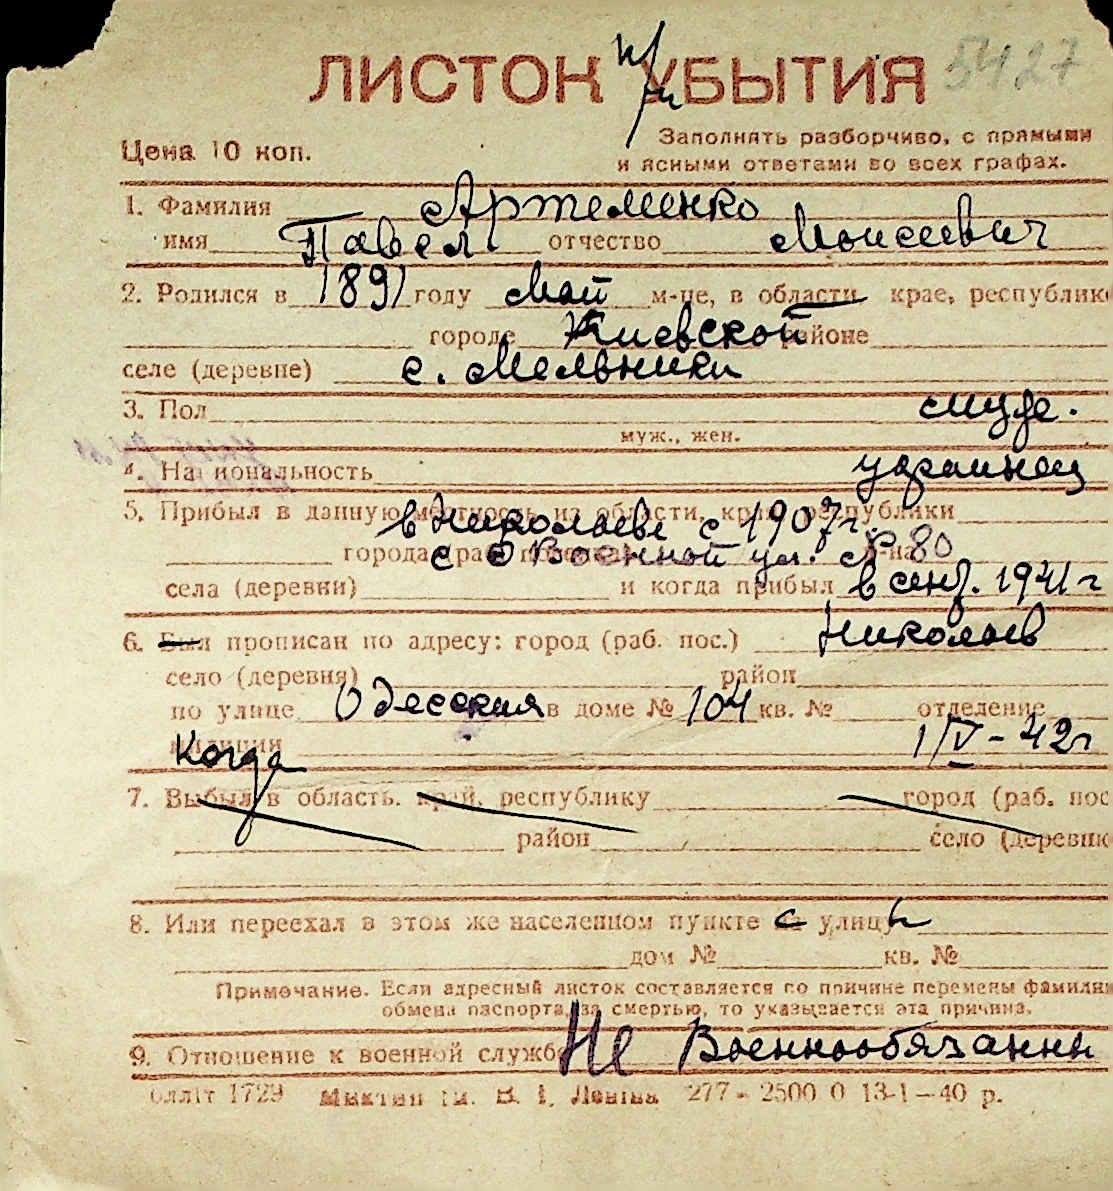 ЛИСТОК УБЫТИЯ 5427
при
Цена 10 коп.
Заполнять разборчиво, с прямыми
и ясными ответами во всех графах.
1. Фамилия Артеменко
имя Павел отчество Моисеевич
2. Родился в 1891 году май м-це, в области, крае, республике
городе Киевской районе
селе (деревне) с. Мельники
3. Пол муж.
муж., жен.
4. Национальность украинец
5. Прибыл в данную местность из области, края, республики
в Николаеве с 1907 г.
города (раб. поселка) р-на
с Военной ул. № 80
села (деревни) и когда прибыл в сент. 1941 г
6. Был прописан по адресу: город (раб. пос.) Николаев
село (деревня) район
по улице Одесская в доме № 104 кв. № отделение
милиции 1/V - 42 г
Когда
7. Выбыл в область, край, республику город (раб. пос
район село (деревню
8. Или переехал в этом же населенном пункте с улицы
дом № кв. №
Примечание. Если адресный листок составляется по причине перемены фамилии
обмена паспорта, за смертью, то указывается эта причина.
9. Отношение к военной службе Не Военнообязанн
олліт 1729 им. В. І. Леніна 277 - 2500 0 13-1-40 р.